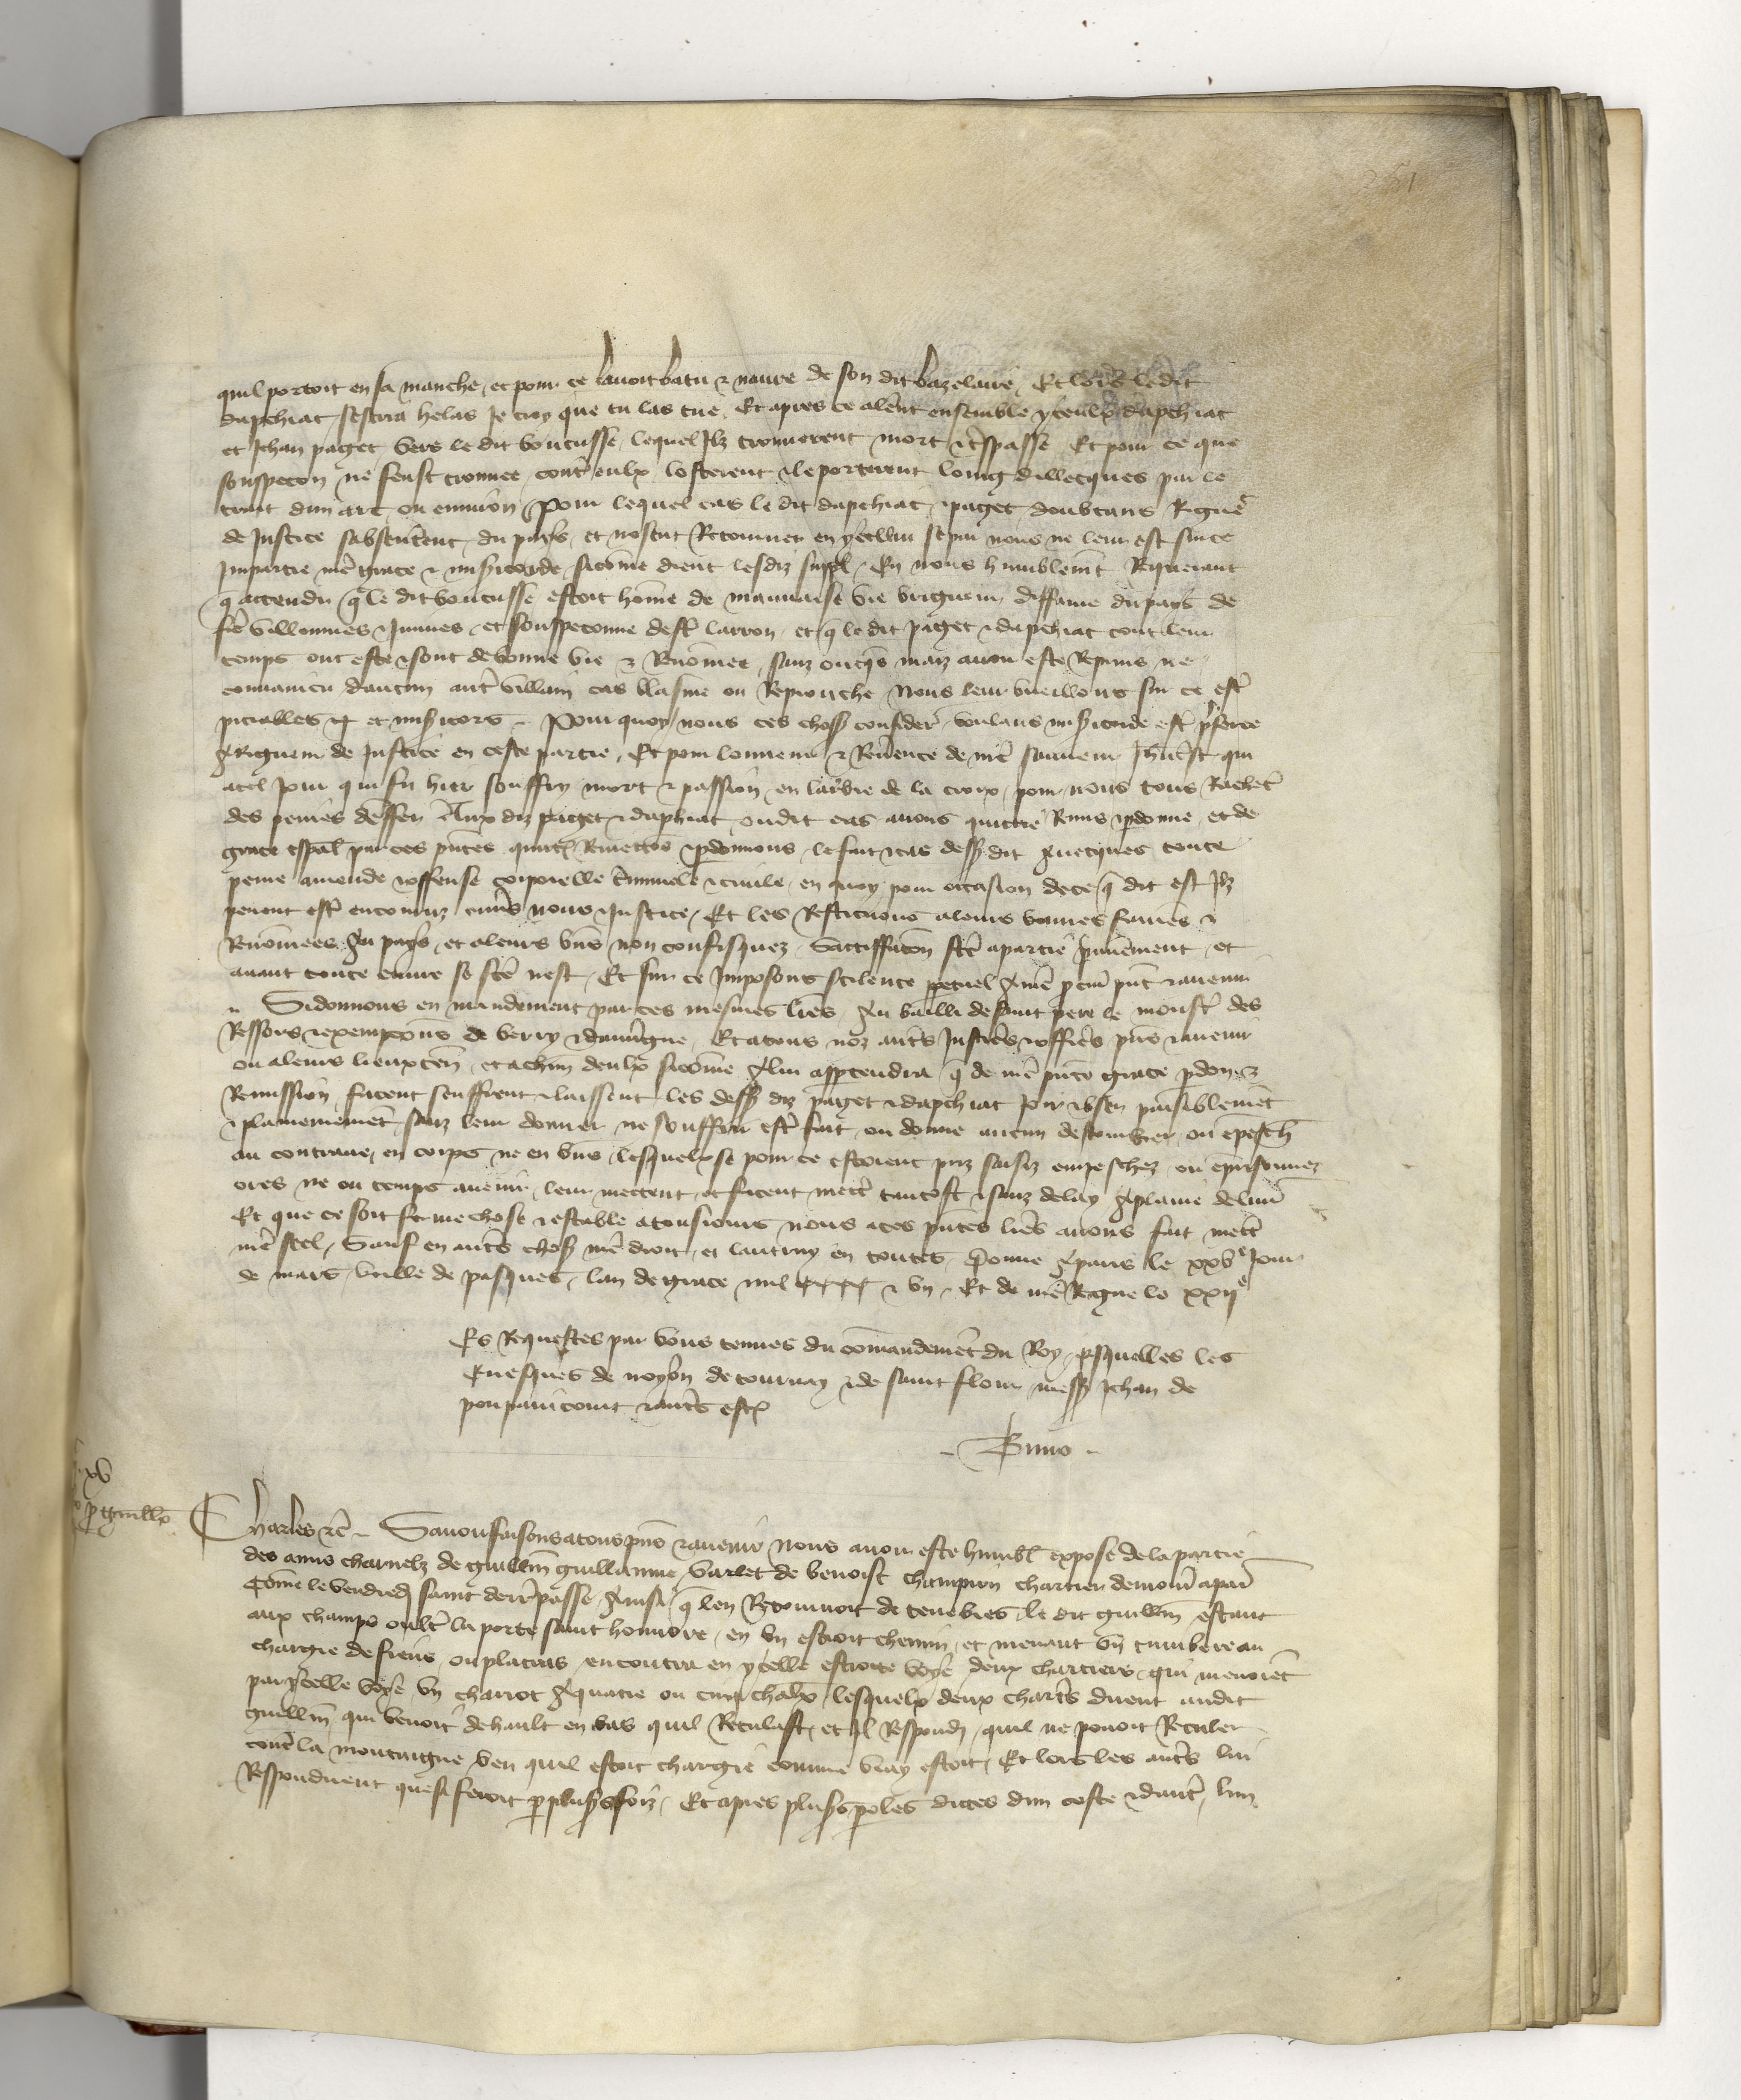 261
quil portoit en sa manche, et pour ce lavoit batu & navre de son dit bazelaire, Et lors le dit
dapchiat sescria helas Je croy que tu las tue, Et apres ce alerent ensemble yceulx dapchiat
et Jehan paget vers le dit voucusse, lequel Ilz trouverent mort & trespasse Et pour ce que
souspecon ne feust trouvee contre eulx losterent & le porterent loing dillecques par le
trait dun arc ou environ Pour lequel cas le dit dapchiat & paget doubtans Rigueur
de Justice sabsenterent du pays, et nosent Retourner en ycellui se par nous ne leur est sur ce
Impartie nre grace & misericorde, sicome dient lesdiz suppl. En nous humblemt Requerant
q attendu q le dit voucusse estoit home de mauvaise vie brigueur diffame du pays de
fe villennies & Injures, et souspeconne destre larron, et q le dit paget & dapchiat tout leur
temps ont este & sont de bonne vie & Renomee, sanz onqs mais avoir este Repris ne
convaincu daucun autre villain cas blasme ou Reprouche Nous leur vueillons sur ce estre
piteables et misicors. Pour quoy nous ces choses considerees voulans misericorde estre preferee
a Rigueur de Justice en ceste partie, Et pour lonneur & Reverence de nre sauveur Jhucrist qui
a tel jour qui fu hier souffry mort & passion en larbre de la croix pour nous tous Racheter
des peines denfer Aux diz paget & dapchiat ou dit cas avons quittie Remis & pardonne, et de
grace espal par ces pntes quittos Remettos & pardonnons le fait & cas dessus dit avecques toute
peine amende & offense corporelle criminele & civile, en quoy pour occasion de ce q dit est Ilz
pevent estre encouruz envers nous & Justice, Et les Restituons a leurs bonnes fames &
Renomees au pays, et a leurs biens non confisquez, satisfficon fce a partie premierement, et
avant toute euvre se fce nest, Et sur ce Imposons scilence perpetuel a nre procur pnt & avenir
Si donnons en mandement par ces mesmes lres au bailli de saint pere le moustr des
Ressors & exempcons de berry & dauvergne Et a tous noz autres Justiciers & officiers pns & avenir
ou a leurs lieuxten, et a chun deulx sicome a lui appartendra q de nre pnte grace pardon &
Remission facent seuffrent & laissent les dessus diz paget & dapchiat Joir & user paisiblement
& plainemement sanz leur donner ne souffrir estre fait, ou donne aucun destourbier, ou epeschemt
au contraire, en corps ne en biens, lesquelx se pour ce estoient priz saisiz empeschez ou emprisonnez
ores ne ou temps avenir, leur mettent, et facent mettre tantost & sanz delay a plaine delivrance
Et que ce soit ferme chose & estable a tousiours, nous a ces pntes lres avons fait mettre
nre scel, Sauf en autres choses nre droit, et lautruy en toutes. Donne a paris le xxve jour
de mars, veille de pasques, lan de grace mil cccc & un, Et de nre Regne le xxiie
Es Requestes par vous tenues du comandement du Roy, esquelles les
Evesques de noyon de tournay & de saint flour mess Jehan de
poupaincourt & autres estoient
- Bruno -
xv
p guillm
Charles &c. Savoir faisons a tous pns & avenir nous avoir este humblemt expose de la partie
des amis charnelz de guillm guillaume, varlet de benoist champion charretier demour a paris
Come le vendredi saint derr passe, ainsi q len Retournoit de tenebres, le dit guillm estant
aux champs oultre la porte saint honnore, en un estroit chemin, et menant un tumbereau
chargie de fiens, ou platras, encontra en ycelle estroite voye deux chartiers, qui menoient
par ycelle voye un chariot a quatre ou cinq chevalx, lesquelx deux chartrs dirent audit
guillm qui venoit de hault en bas quil Reculast, et Il Respondi, quil ne pouoit Reculer
contre la montaigne, veu quil estoit chargie comme vray estoit, Et lors les autres lui
Respondirent que si feroit p plusrs foiz, Et apres plusrs paroles dictes dun coste & dautre, lun